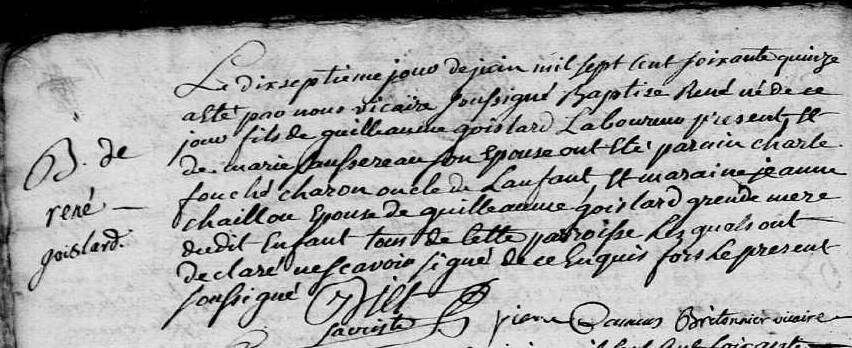 B. de
rené
goislard.
Le dixseptieme jour de juin mil sept cent soixante quinze
a été par nous vicaire soussigné Baptise René né de ce
jour fils de guilleaume goislard Laboureur present, et
de marie aussereau son Epouse ont Eté parain charle
fouché charon oncle de Lanfant et maraine jeanne
chaillou Epouse de guilleaume goislard grende mere
dudit Enfant tous de cette paroisse Lesquels ont
declaré ne scavoir signé de ce Enquis fors Le present
soussigné
sacriste pierre Bretonnier vicaire